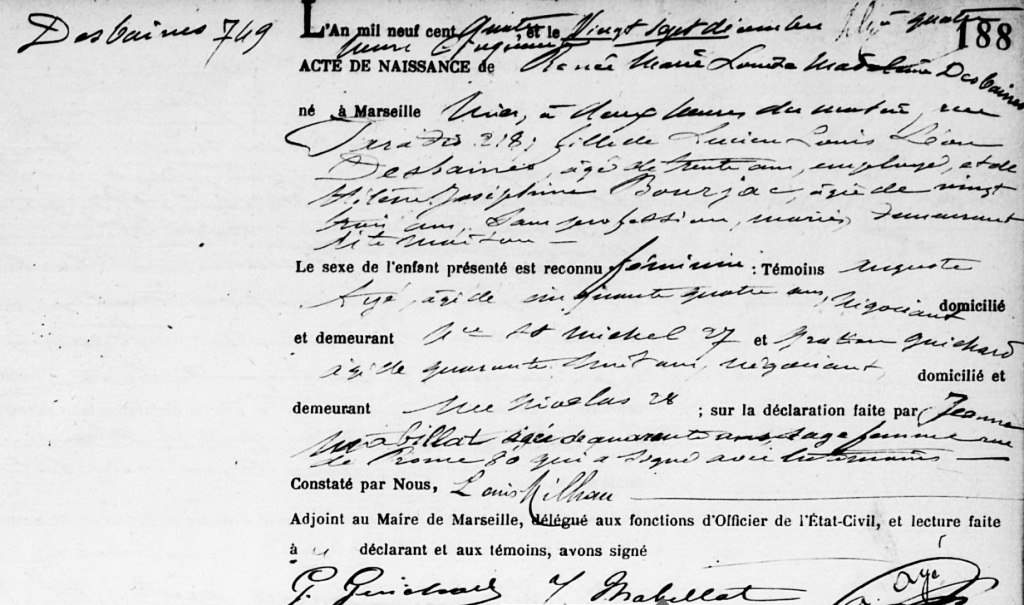 Desbaines 749
188
L'An mil neuf cent quatre, et le Vingt sept décembre à quatre
heures
ACTE DE NAISSANCE de Renée Marie Louise Madeleine Desbaines
né à Marseille hier, à deux heures du matin, rue
Paradis 218, fille de Lucien Louis Léon
Desbaines, âgé de trente ans, employé, et de
Hélène Joséphine Bourjac, âgée de vingt
trois ans, sans profession, mariés, demeurant
dite maison —
Le sexe de l'enfant présenté est reconnu féminin : Témoins Auguste
Ayé, âgé de cinquante quatre ans, négociant domicilié
et demeurant Pce St Michel 27 et Guichard
âgé de quarante huit ans, négociant, domicilié et
demeurant rue Nicolas 28 ; sur la déclaration faite par Jeanne
Mabillat âgée de quarante ans, sage femme rue
de Rome 80 qui a signé avec les témoins —
Constaté par Nous, Louis Milhau
Adjoint au Maire de Marseille, délégué aux fonctions d'Officier de l'État-Civil, et lecture faite
à déclarant et aux témoins, avons signé
G. Guichard J. Mabillat Ayé